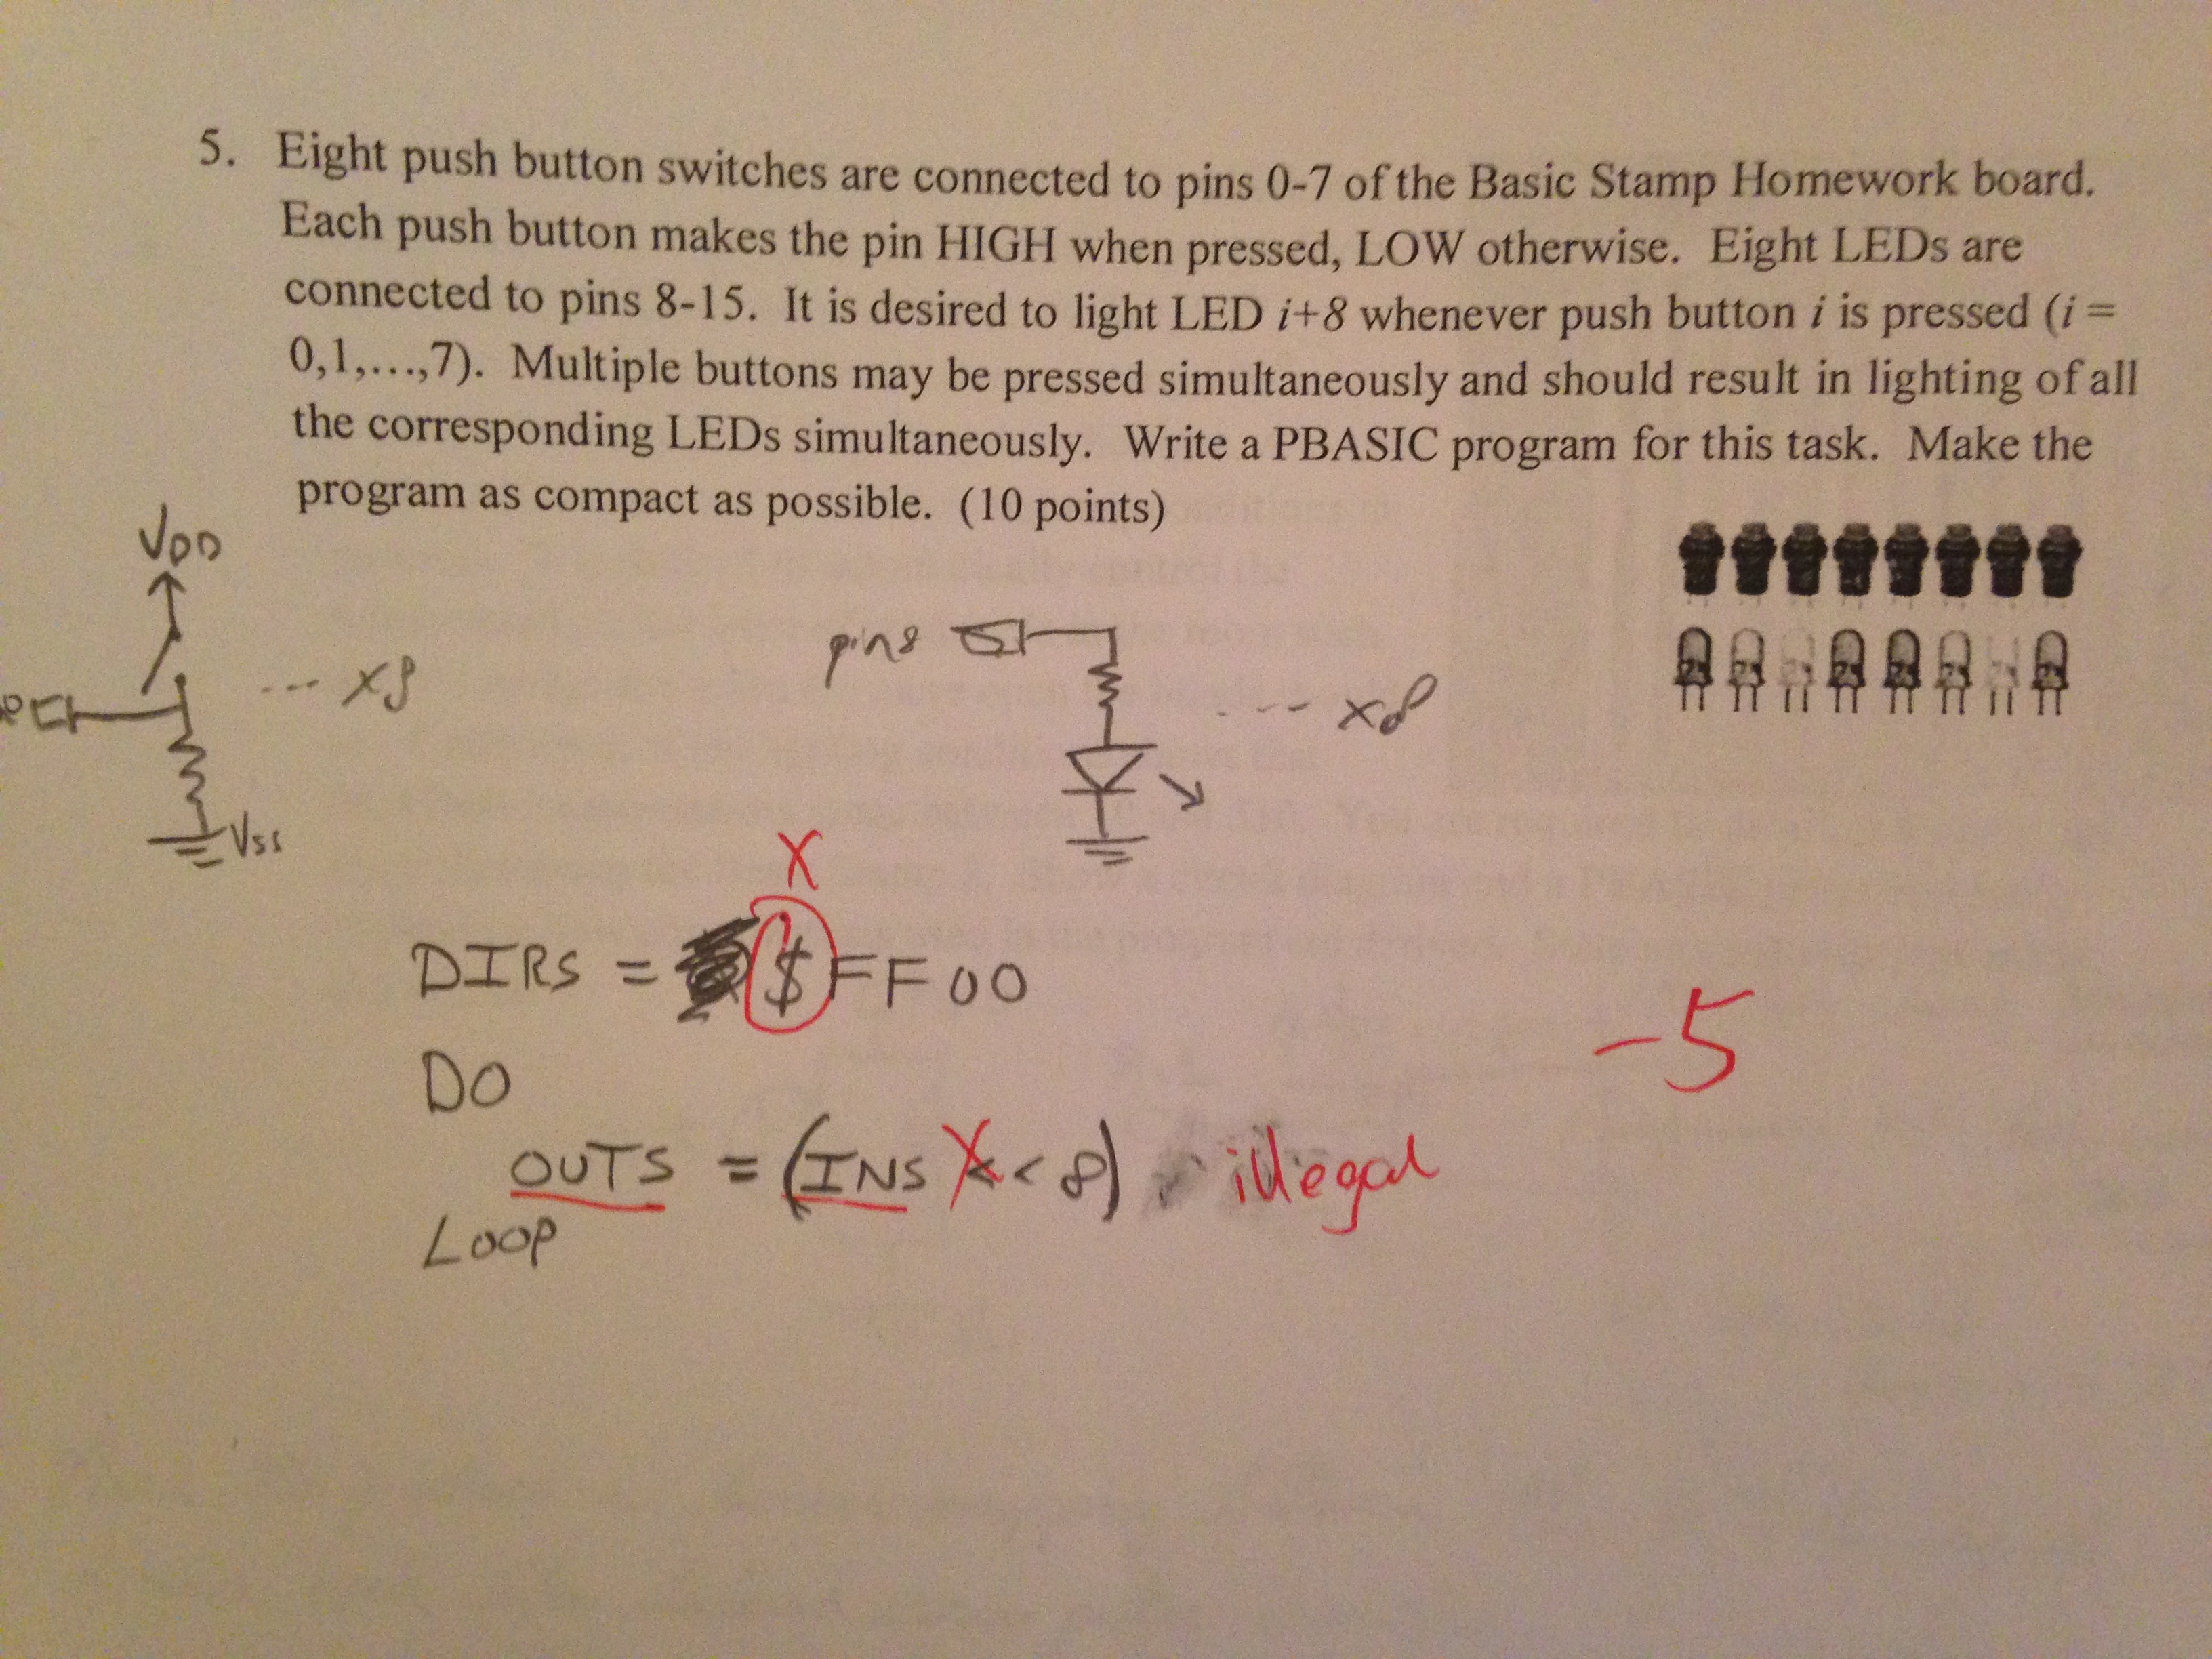 5. Eight push button switches are connected to pins 0-7 of the Basic Stamp Homework board.
Each push button makes the pin HIGH when pressed, LOW otherwise. Eight LEDs are
connected to pins 8-15. It is desired to light LED i+8 whenever push button i is pressed (i =
0,1,...,7). Multiple buttons may be pressed simultaneously and should result in lighting of all
the corresponding LEDs simultaneously. Write a PBASIC program for this task. Make the
program as compact as possible. (10 points)
VDD
--- x8
Vss
pin8
--- x8
X
DIRS = $FF00
-5
DO
OUTS = (INS << 8) illegal
LOOP